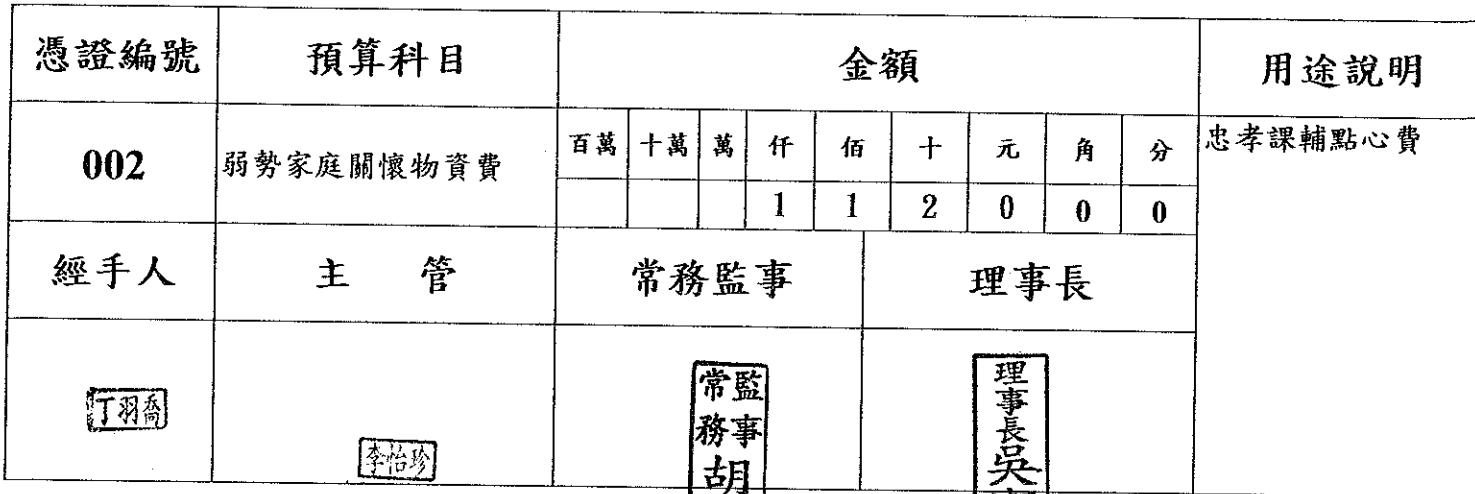 憑證編號 預算科目 金額 用途說明
002 弱勢家庭關懷物資費 百萬 十萬 萬 仟 佰 十 元 角 分 忠孝課輔點心費
1 1 2 0 0 0
經手人 主 管 常務監事 理事長
丁羽喬 李怡珍 常務監事胡 理事長吳